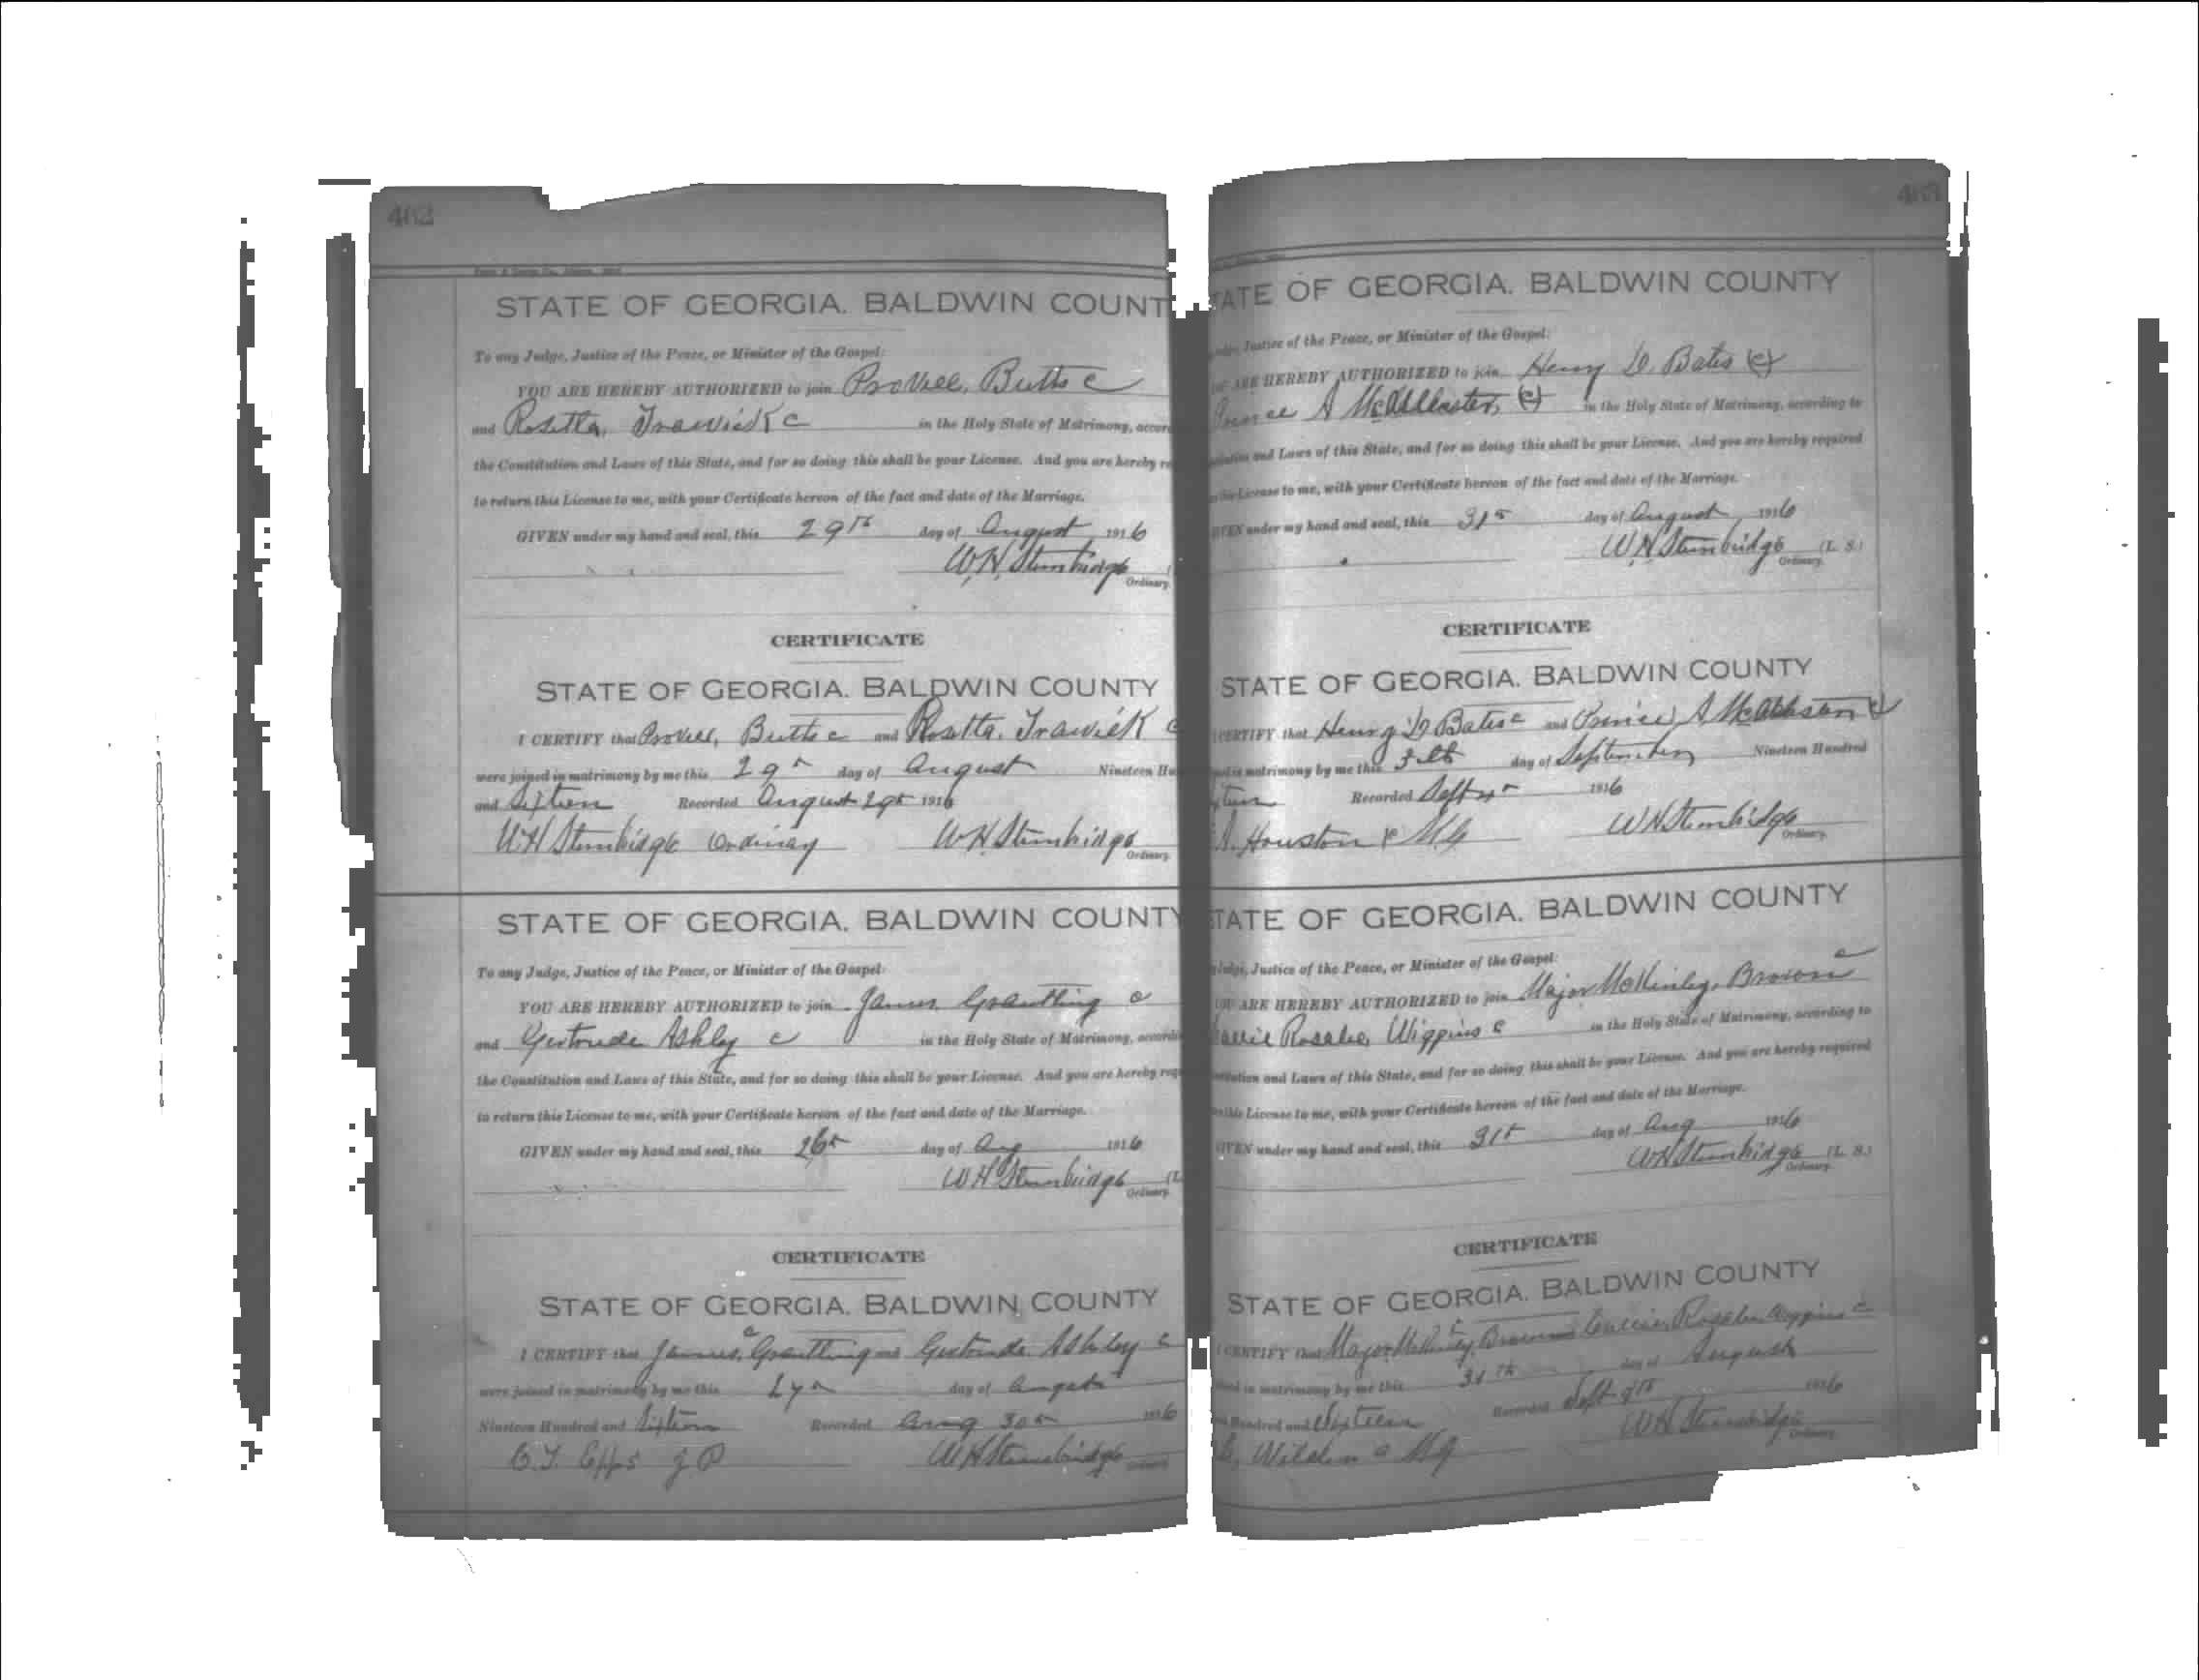 462
STATE OF GEORGIA. BALDWIN COUNT
To any Judge, Justice of the Peace, or Minister of the Gospel:
YOU ARE HEREBY AUTHORIZED to join Butts c
and Rosetta, Trawick c in the Holy State of Matrimony, accor
the Constitution and Laws of this State, and for so doing this shall be your License. And you are hereby re
to return this License to me, with your Certificate hereon of the fact and date of the Marriage.
GIVEN under my hand and seal, this 29th day of August 1916
W.H. Stembridge
Ordinary.
CERTIFICATE
STATE OF GEORGIA. BALDWIN COUNTY
I CERTIFY that Butts c and Rosetta, Trawick c
were joined in matrimony by me this 29th day of August Nineteen Hu
and Sixteen Recorded August 29th 1916
W.H Stembridge Ordinary W.H. Stembridge
Ordinary.
STATE OF GEORGIA. BALDWIN COUNTY
To any Judge, Justice of the Peace, or Minister of the Gospel:
YOU ARE HEREBY AUTHORIZED to join James Grantling c
and Gertrude Ashley c in the Holy State of Matrimony, accordi
the Constitution and Laws of this State, and for so doing this shall be your License. And you are hereby req
to return this License to me, with your Certificate hereon of the fact and date of the Marriage.
GIVEN under my hand and seal, this 26th day of Aug 1916
W H Stembridge (L.
Ordinary.
CERTIFICATE
STATE OF GEORGIA. BALDWIN COUNTY
I CERTIFY that James, c Grantling and Gertrude Ashley c
were joined in matrimony by me this day of
Nineteen Hundred and Sixteen Recorded Aug 30th 1916
Epps J P W H Stembridge
Ordinary.
463
TATE OF GEORGIA. BALDWIN COUNTY
Justice of the Peace, or Minister of the Gospel:
ARE HEREBY AUTHORIZED to join Henry D. Bates (c)
A McAllaster, (c) in the Holy State of Matrimony, according to
and Laws of this State, and for so doing this shall be your License. And you are hereby required
License to me, with your Certificate hereon of the fact and date of the Marriage.
GIVEN under my hand and seal, this 31st day of August, 1916
W.H Stembridge (L. S.)
Ordinary.
CERTIFICATE
STATE OF GEORGIA. BALDWIN COUNTY
CERTIFY that Henry D Bates c and A McAllaster c
in matrimony by me this day of September Nineteen Hundred
Recorded Sept 4th 1916
Houston c M G W H Stembridge
Ordinary.
TATE OF GEORGIA. BALDWIN COUNTY
Justice of the Peace, or Minister of the Gospel:
ARE HEREBY AUTHORIZED to join Major McKinley, Brown c
Rosalee, Wiggins c in the Holy State of Matrimony, according to
and Laws of this State, and for so doing this shall be your License. And you are hereby required
this License to me, with your Certificate hereon of the fact and date of the Marriage.
GIVEN under my hand and seal, this 31st day of Aug 1916
W H Stembridge (L. S.)
Ordinary.
CERTIFICATE
STATE OF GEORGIA. BALDWIN COUNTY
I CERTIFY that Major McKinley c Brown and Rosalee Wiggins c
in matrimony by me this 31th day of August
Hundred and Sixteen Recorded Sept 1916
M G W H Stembridge
Ordinary.